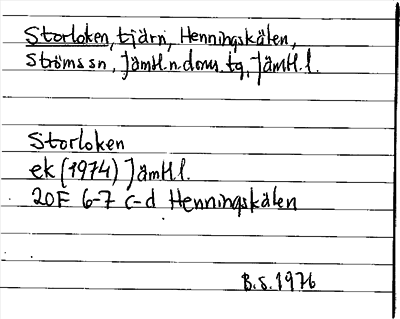 Storloken, tjärn, Henningskälen,
Ströms sn, Jämtl. n. doms. tg, Jämtl. l.
Storloken
ek (1974) Jämtl.
20F 6-7 c-d Henningskälen
B.S. 1976